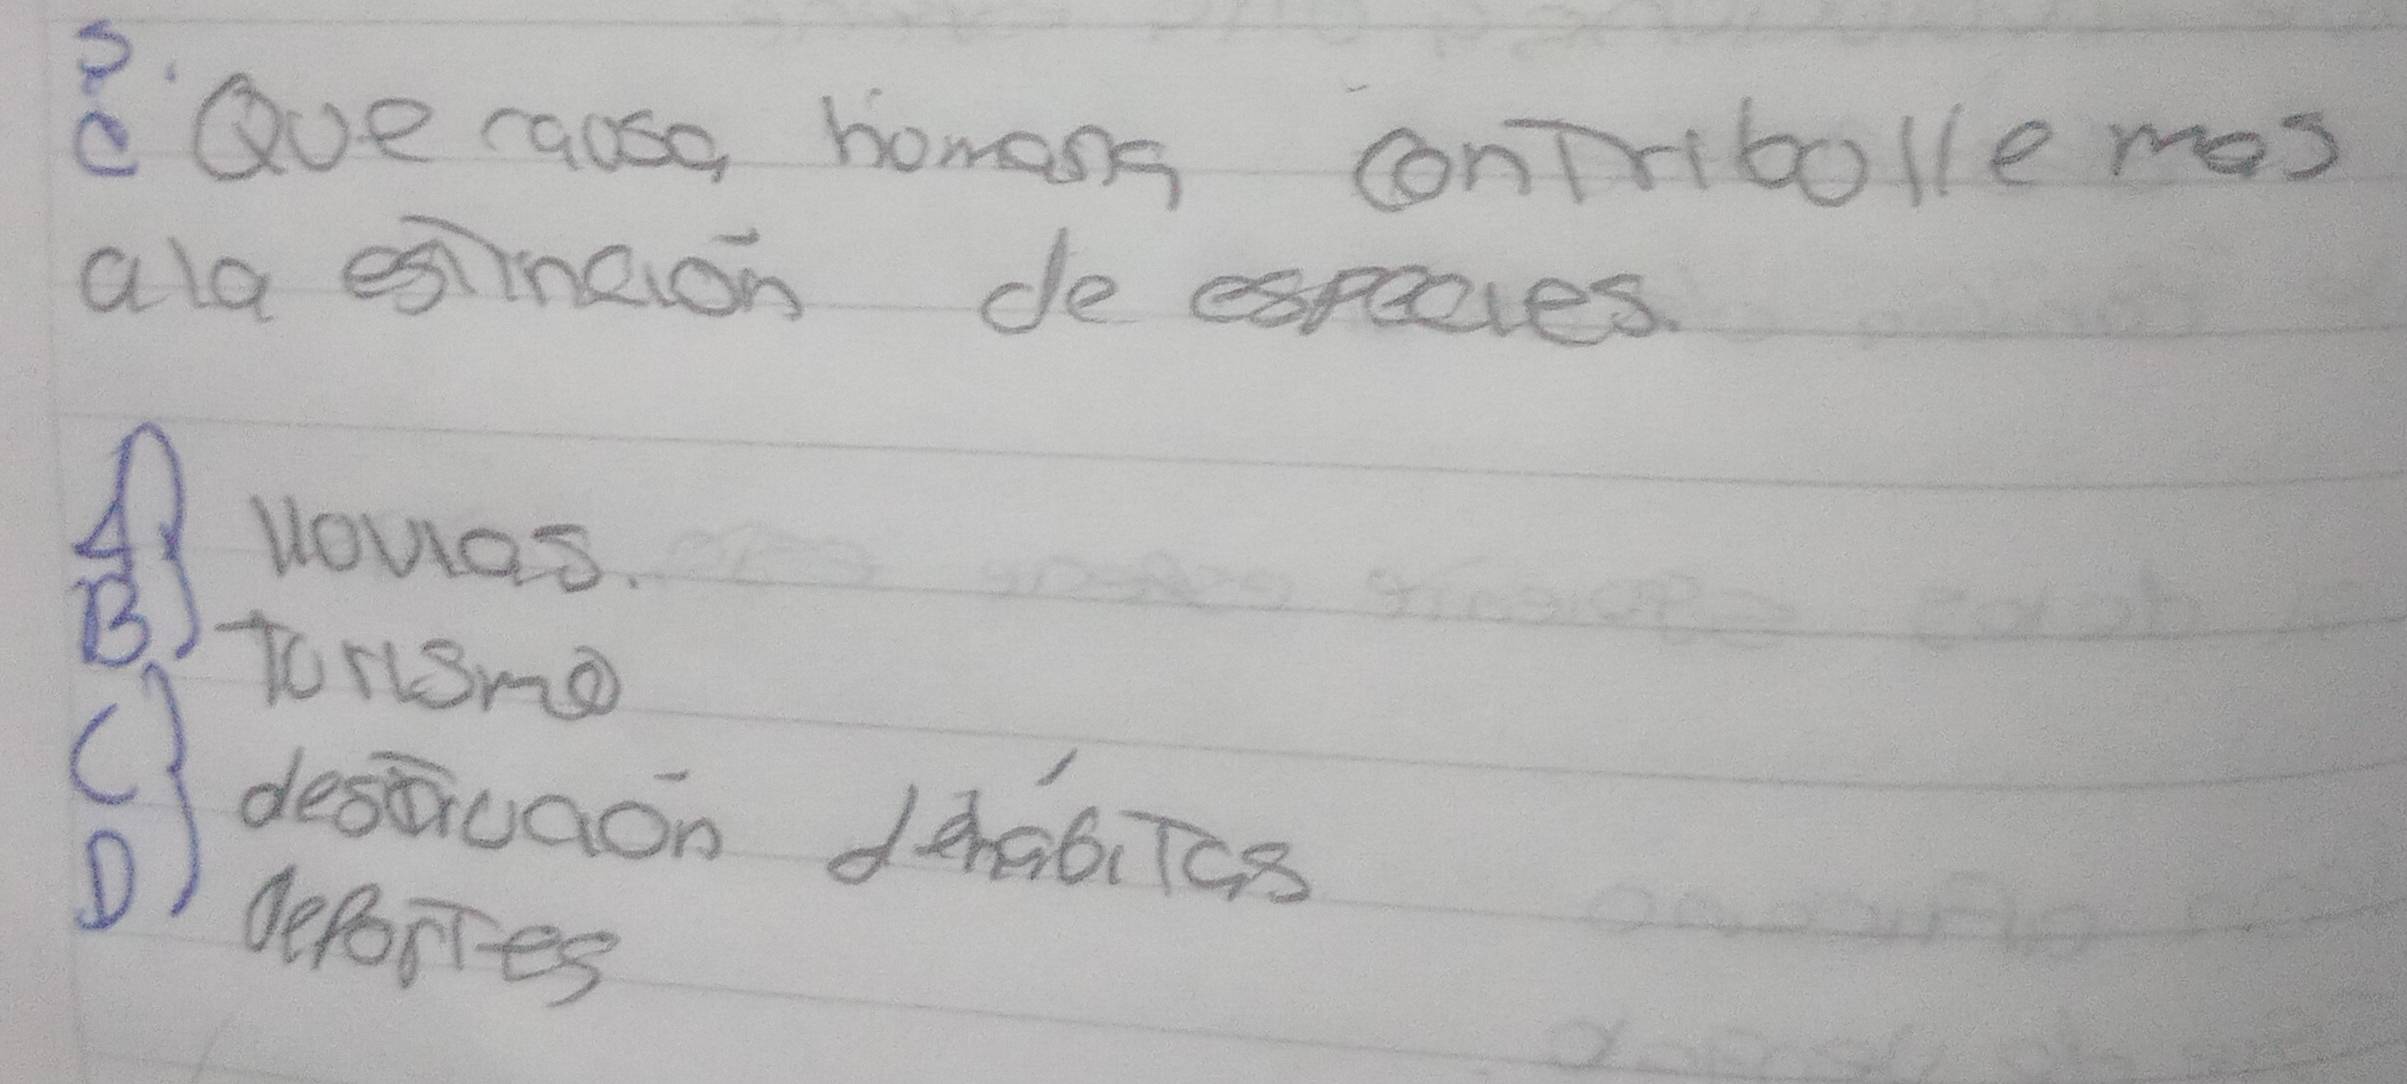 5.
c Que causa homana contribolle mas
ala estinción de especies.
A) llovias.
B) Torismo
C) destrucción de hábitas
D) deportes